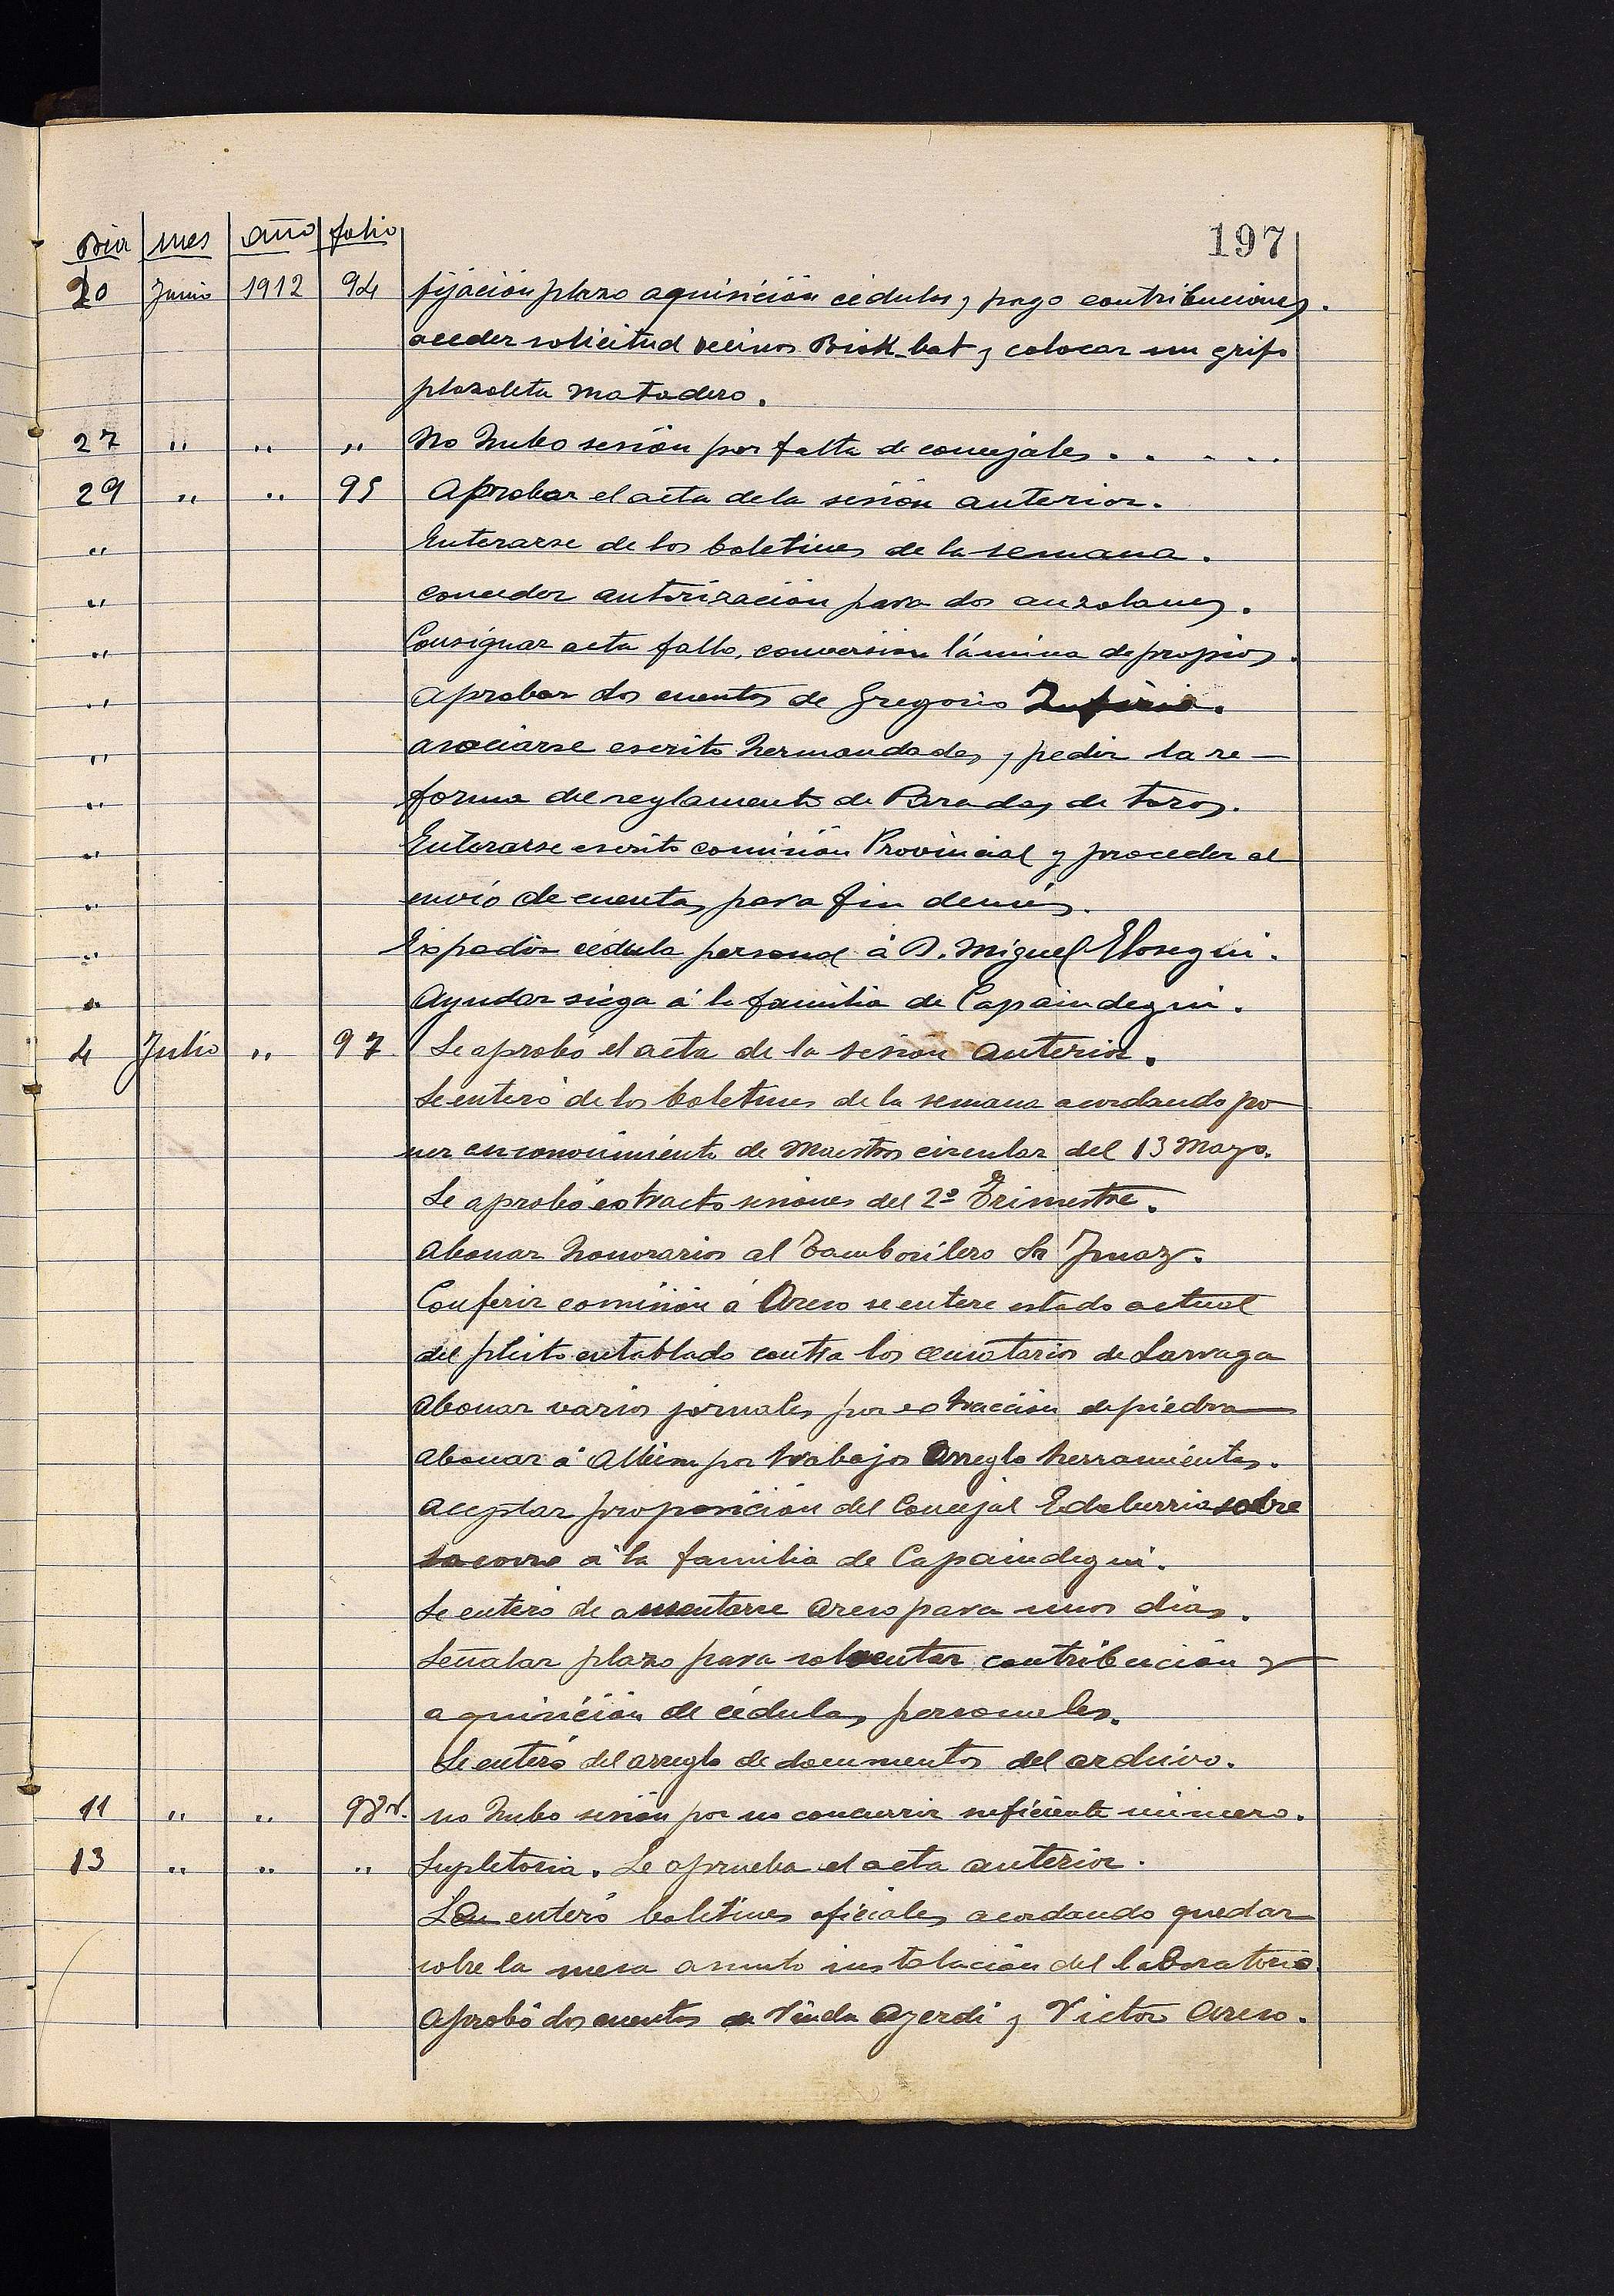 197
Dia mes año folio
20 Junio 1912 94 fijación plazo aquisición cédulas y pago contribuciones.
acceder solicitud vecinos Bick-bat y colocar un grifo
plazoleta Matadero.
27 " " " No hubo sesión por falta de concejales . . . . .
29 " " 95 Aprobar el acta de la sesión anterior.
" Enterarse de los boletines de la semana.
" conceder autorización para dos anzolanes.
" Consignar acta fallo, conversión lámina de propios.
" aprobar dos cuentas de Gregorio
" asociarse escrito hermandades y pedir la re-
" forma del reglamento de Paradas de toros.
" Enterarse escrito comisión Provincial y proceder al
" envío de cuentas para fin de mes.
" Expedir cédula personal á D. Miguel Elosegui.
" Ayudar siega á la familia de Capaindegui.
4 Julio " 97 Se aprobó el acta de la sesión anterior.
Se enteró de los boletines de la semana acordando po
ner en conocimiento de Maestros circular del 13 Mayo.
Se aprobó extracto sesiones del 2º Trimestre.
Abonar honorarios al Tamborilero Sr Ymaz.
Conferir comisión á Areso se entere estado actual
del pleito entablado contra los censatarios de Larraga
Abonar varios jornales por extracción de piedra
Abonar á Albisu por trabajos Arreglo herramientas.
Aceptar proposición del Concejal Edaburria sobre
socorro á la familia de Capaindegui.
Se enteró de ausentarse Areso para unos dias.
Señalar plazo para solventar contribución y
aquisición de cédulas personales.
Se enteró del arreglo de documentos del archivo.
11 " " 98 v. no hubo sesión por no concurrir suficiente número.
13 " " " Supletoria. Se aprueba el acta anterior.
Se enteró boletines oficiales acordando quedar
sobre la mesa asunto instalación del laboratorio.
Aprobó dos cuentas de Viuda Ayerdi y Victor Areso.